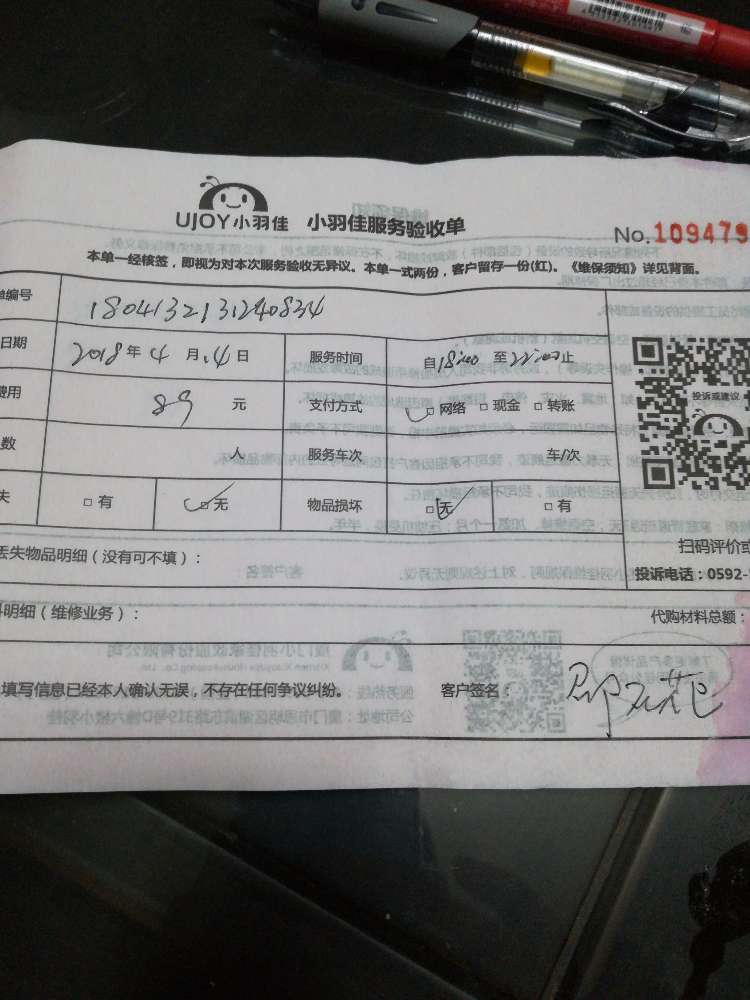 UJOY小羽佳 小羽佳服务验收单
No.109479
本单一经核签，即视为对本次服务验收无异议。本单一式两份，客户留存一份(红)。《维保须知》详见背面。
编号 1804132131240834
日期 2018年4月14日 服务时间 自18:00至22:00止
费用 89元 支付方式 □网络 □现金 □转账
数 人 服务车次 车/次
失 □有 □无 物品损坏 □无 □有
投诉或建议
扫码评价或
投诉电话：0592-
丢失物品明细（没有可不填）：
明细（维修业务）： 代购材料总额：
填写信息已经本人确认无误，不存在任何争议纠纷。 客户签名：